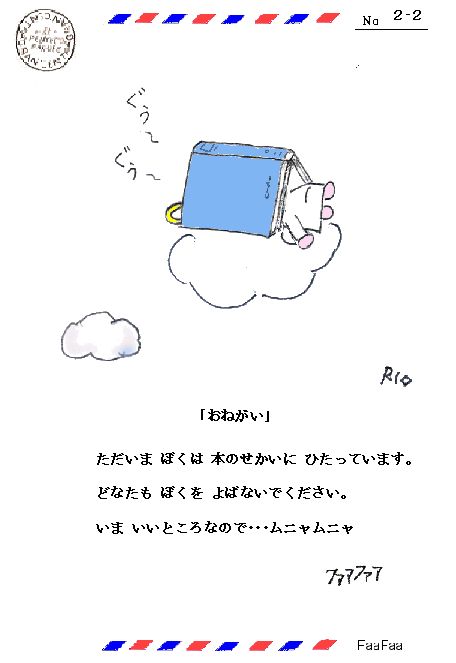 No 2-2
ぐぅ～
ぐぅ～
Rio
「おねがい」
ただいま ぼくは 本のせかいに ひたっています。
どなたも ぼくを よばないでください。
いま いいところなので･･･ムニャムニャ
ファアファア
FaaFaa